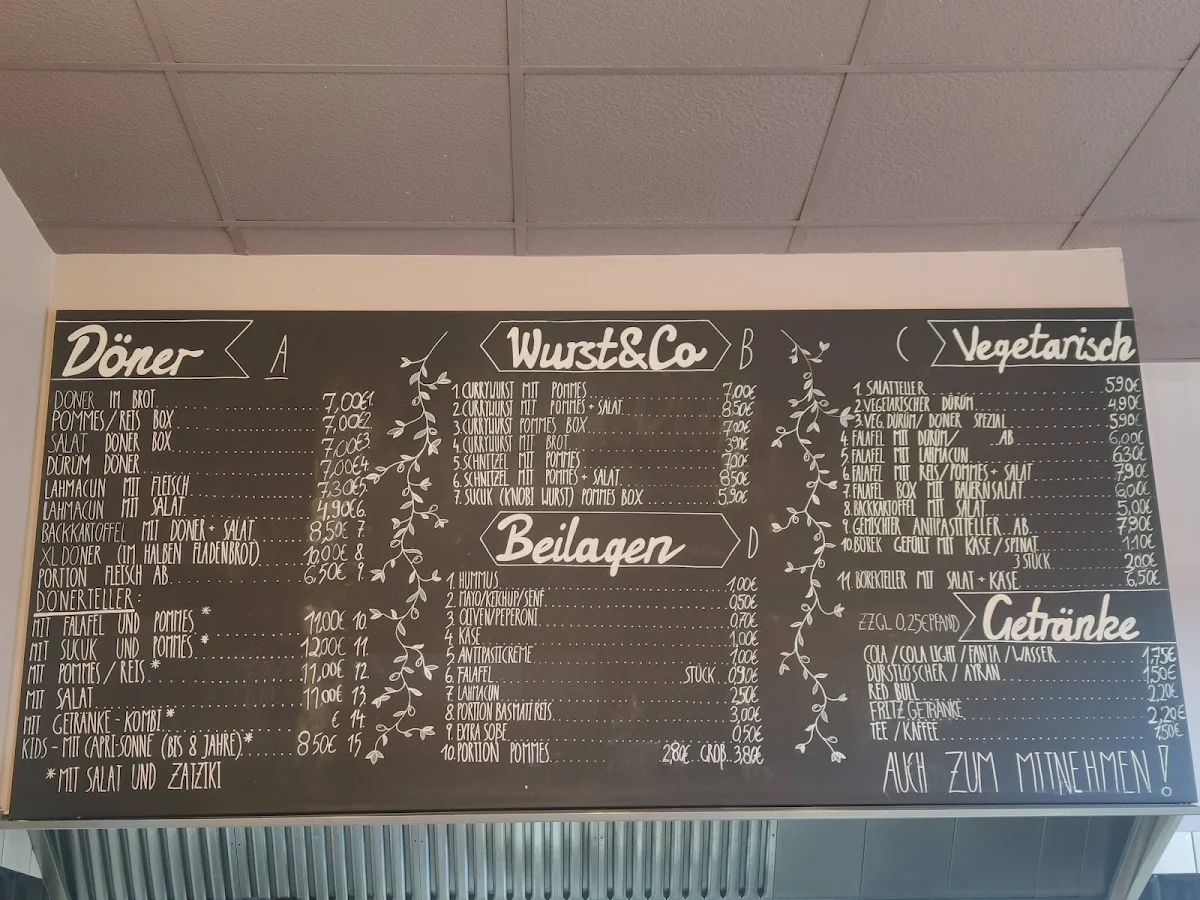 Döner A
DÖNER IM BROT 7,00€ 1
POMMES/REIS BOX 7,00€ 2
SALAT DÖNER BOX 7,00€ 3
DÜRÜM DÖNER 7,00€ 4
LAHMACUN MIT FLEISCH 7,30€ 5
LAHMACUN MIT SALAT 4,90€ 6.
BACKKARTOFFEL MIT DÖNER + SALAT 8,50€ 7.
XL DÖNER (IM HALBEN FLADENBROT) 10,00€ 8.
PORTION FLEISCH AB 6,50€ 9.
DÖNERTELLER:
MIT FALAFEL UND POMMES * 11,00€ 10.
MIT SUCUK UND POMMES * 12,00€ 11.
MIT POMMES/REIS * 11,00€ 12.
MIT SALAT 11,00€ 13.
MIT GETRÄNKE-KOMBI * € 14.
KIDS - MIT CAPRI-SONNE (BIS 8 JAHRE) * 8,50€ 15.
*MIT SALAT UND ZATZIKI
Wurst&Co B
1. CURRYWURST MIT POMMES 7,00€
2. CURRYWURST MIT POMMES + SALAT 8,50€
3. CURRYWURST POMMES BOX 7,00€
4. CURRYWURST MIT BROT 3,90€
5. SCHNITZEL MIT POMMES 7,00€
6. SCHNITZEL MIT POMMES + SALAT 8,50€
7. SUCUK (KNOBI WURST) POMMES BOX 5,90€
Beilagen D
1. HUMMUS 1,00€
2. MAYO/KETCHUP/SENF 0,50€
3. OLIVEN/PEPERONI 0,70€
4. KÄSE 1,00€
5. ANTIPASTICREME 1,00€
6. FALAFEL STÜCK 0,90€
7. LAHMACUN 2,50€
8. PORTION BASMATI REIS 3,00€
9. EXTRA SOßE 0,50€
10. PORTION POMMES 2,80€ GROß 3,80€
C Vegetarisch
1. SALATTELLER 5,90€
2. VEGETARISCHER DÜRÜM 4,90€
3. VEG. DÜRÜM/ DÖNER SPEZIAL 5,90€
4. FALAFEL MIT DÜRÜM/ AB 6,00€
5. FALAFEL MIT LAHMACUN 6,30€
6. FALAFEL MIT REIS/POMMES + SALAT 7,90€
7. FALAFEL BOX MIT BAUERNSALAT 6,00€
8. BACKKARTOFFEL MIT SALAT 5,00€
9. GEMISCHER ANTIPASTITELLER AB 7,90€
10. BÖREK GEFÜLT MIT KÄSE/SPINAT 1,10€
3 STÜCK 2,00€
11. BÖREKTELLER MIT SALAT + KÄSE 6,50€
ZZGL. 0,25€ PFAND Getränke
COLA/COLA LIGHT/FANTA/WASSER 1,75€
DURSTLÖSCHER/AYRAN 1,50€
RED BULL 2,20€
FRITZ GETRÄNKE 2,20€
TEE/KAFFEE 1,50€
AUCH ZUM MITNEHMEN!